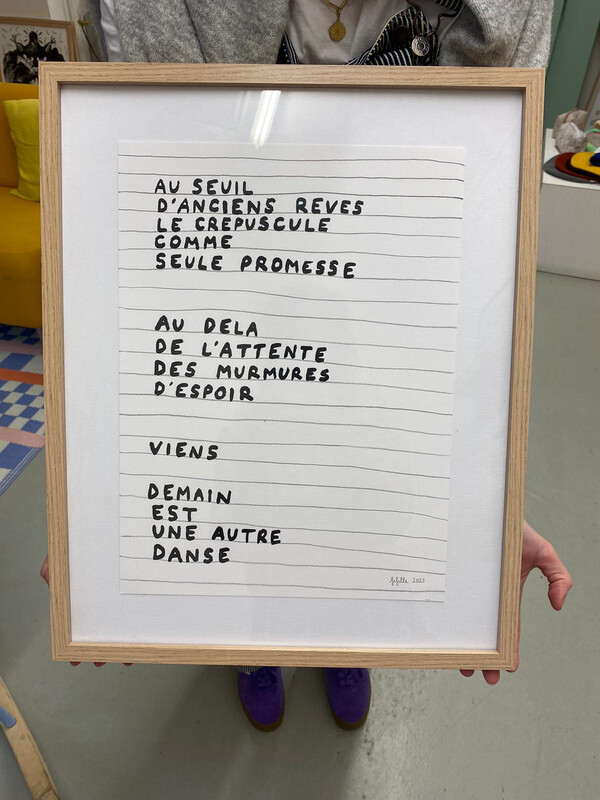 AU SEUIL
D'ANCIENS REVES
LE CREPUSCULE
COMME
SEULE PROMESSE
AU DELA
DE L'ATTENTE
DES MURMURES
D'ESPOIR
VIENS
DEMAIN
EST
UNE AUTRE
DANSE
2023